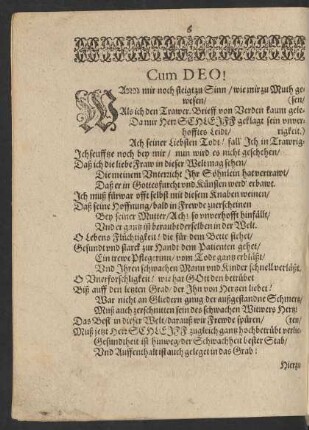 Cum DEO!
WAnn mir noch steigt zu Sinn / wie mir zu Muth ge-
wesen / (sen /
Als ich den Trawer-Brieff von Verden kaum gele-
Da mir Herr SCHLEIFF geklagt sein unver-
hofftes Leidt / rigkeit.)
Ach seiner Liebsten Todt / fall' Ich in Trawrig-
Ich seufftze noch bey mir / nun wird es nicht geschehen /
Daß ich die liebe Fraw in dieser Welt mag sehen /
Die meinem Unterricht Ihr Söhnlein hat vertrawt /
Daß er in Gottesfurcht und Künsten werd' erbawt.
Ich muß fürwar offt selbst mit diesem Knaben weinen /
Daß seine Hoffnung / bald in Frewde zu erscheinen
Bey seiner Mutter / Ach! so unverhofft hinfällt /
Und er gantz ist beraubt derselben in der Welt.
O Lebens Flüchtigkeit! die für dem Bette stehet /
Gesundt und starck zur Handt dem Patienten gehet /
Ein trewe Pflegerinn / vom Tode gantz erblaßt /
Und Ihren schwachen Mann und Kinder schnell verläßt.
O Unerforschligkeit! wie hat GOtt den betrübet
Biß auff den letzten Grad / der Ihn von Hertzen liebet!
War nicht an Gliedern gnug der außgestandne Schmertz /
Muß auch zerschnitten sein des schwachen Witwers Hertz:
Das Best' in dieser Welt / darauß wir Frewde spüren / (ren /
Muß jetzt Herr SCHLEIFF zugleich gantz hochbetrübt verlie-
Gesundtheit ist hinweg / der Schwachheit bester Stab /
Und Auffenthalt ist auch geleget in das Grab:
Hierzu